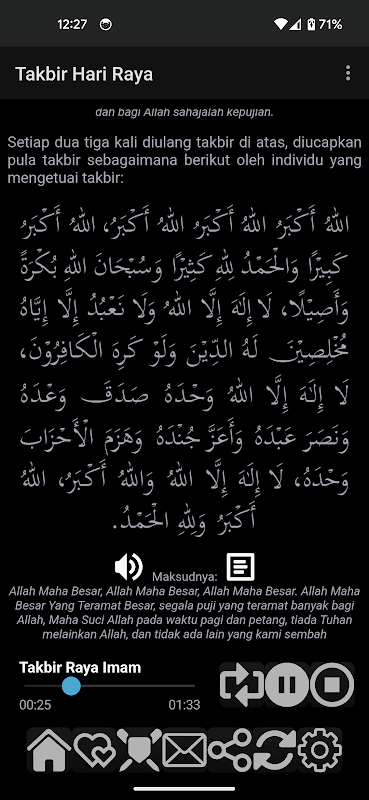 12:27
71%
Takbir Hari Raya
dan bagi Allah sahajalah kepujian.
Setiap dua tiga kali diulang takbir di atas, diucapkan
pula takbir sebagaimana berikut oleh individu yang
mengetuai takbir:
اللهُ أَكْبَرُ اللهُ أَكْبَرُ اللهُ أَكْبَرُ، اللهُ أَكْبَرُ
كَبِيْرًا وَالْحَمْدُ لِلّٰهِ كَثِيْرًا وَسُبْحَانَ اللهِ بُكْرَةً
وَأَصِيْلًا، لَا إِلَهَ إِلَّا اللهُ وَلَا نَعْبُدُ إِلَّا إِيَّاهُ
مُخْلِصِيْنَ لَهُ الدِّيْنَ وَلَوْ كَرِهَ الْكَافِرُوْنَ،
لَا إِلَهَ إِلَّا اللهُ وَحْدَهُ صَدَقَ وَعْدَهُ
وَنَصَرَ عَبْدَهُ وَأَعَزَّ جُنْدَهُ وَهَزَمَ الْأَحْزَابَ
وَحْدَهُ، لَا إِلَهَ إِلَّا اللهُ وَاللهُ أَكْبَرُ، اللهُ
أَكْبَرُ وَلِلّٰهِ الْحَمْدُ.
Maksudnya:
Allah Maha Besar, Allah Maha Besar, Allah Maha Besar. Allah Maha
Besar Yang Teramat Besar, segala puji yang teramat banyak bagi
Allah, Maha Suci Allah pada waktu pagi dan petang, tiada Tuhan
melainkan Allah, dan tidak ada lain yang kami sembah
Takbir Raya Imam
00:25
01:33